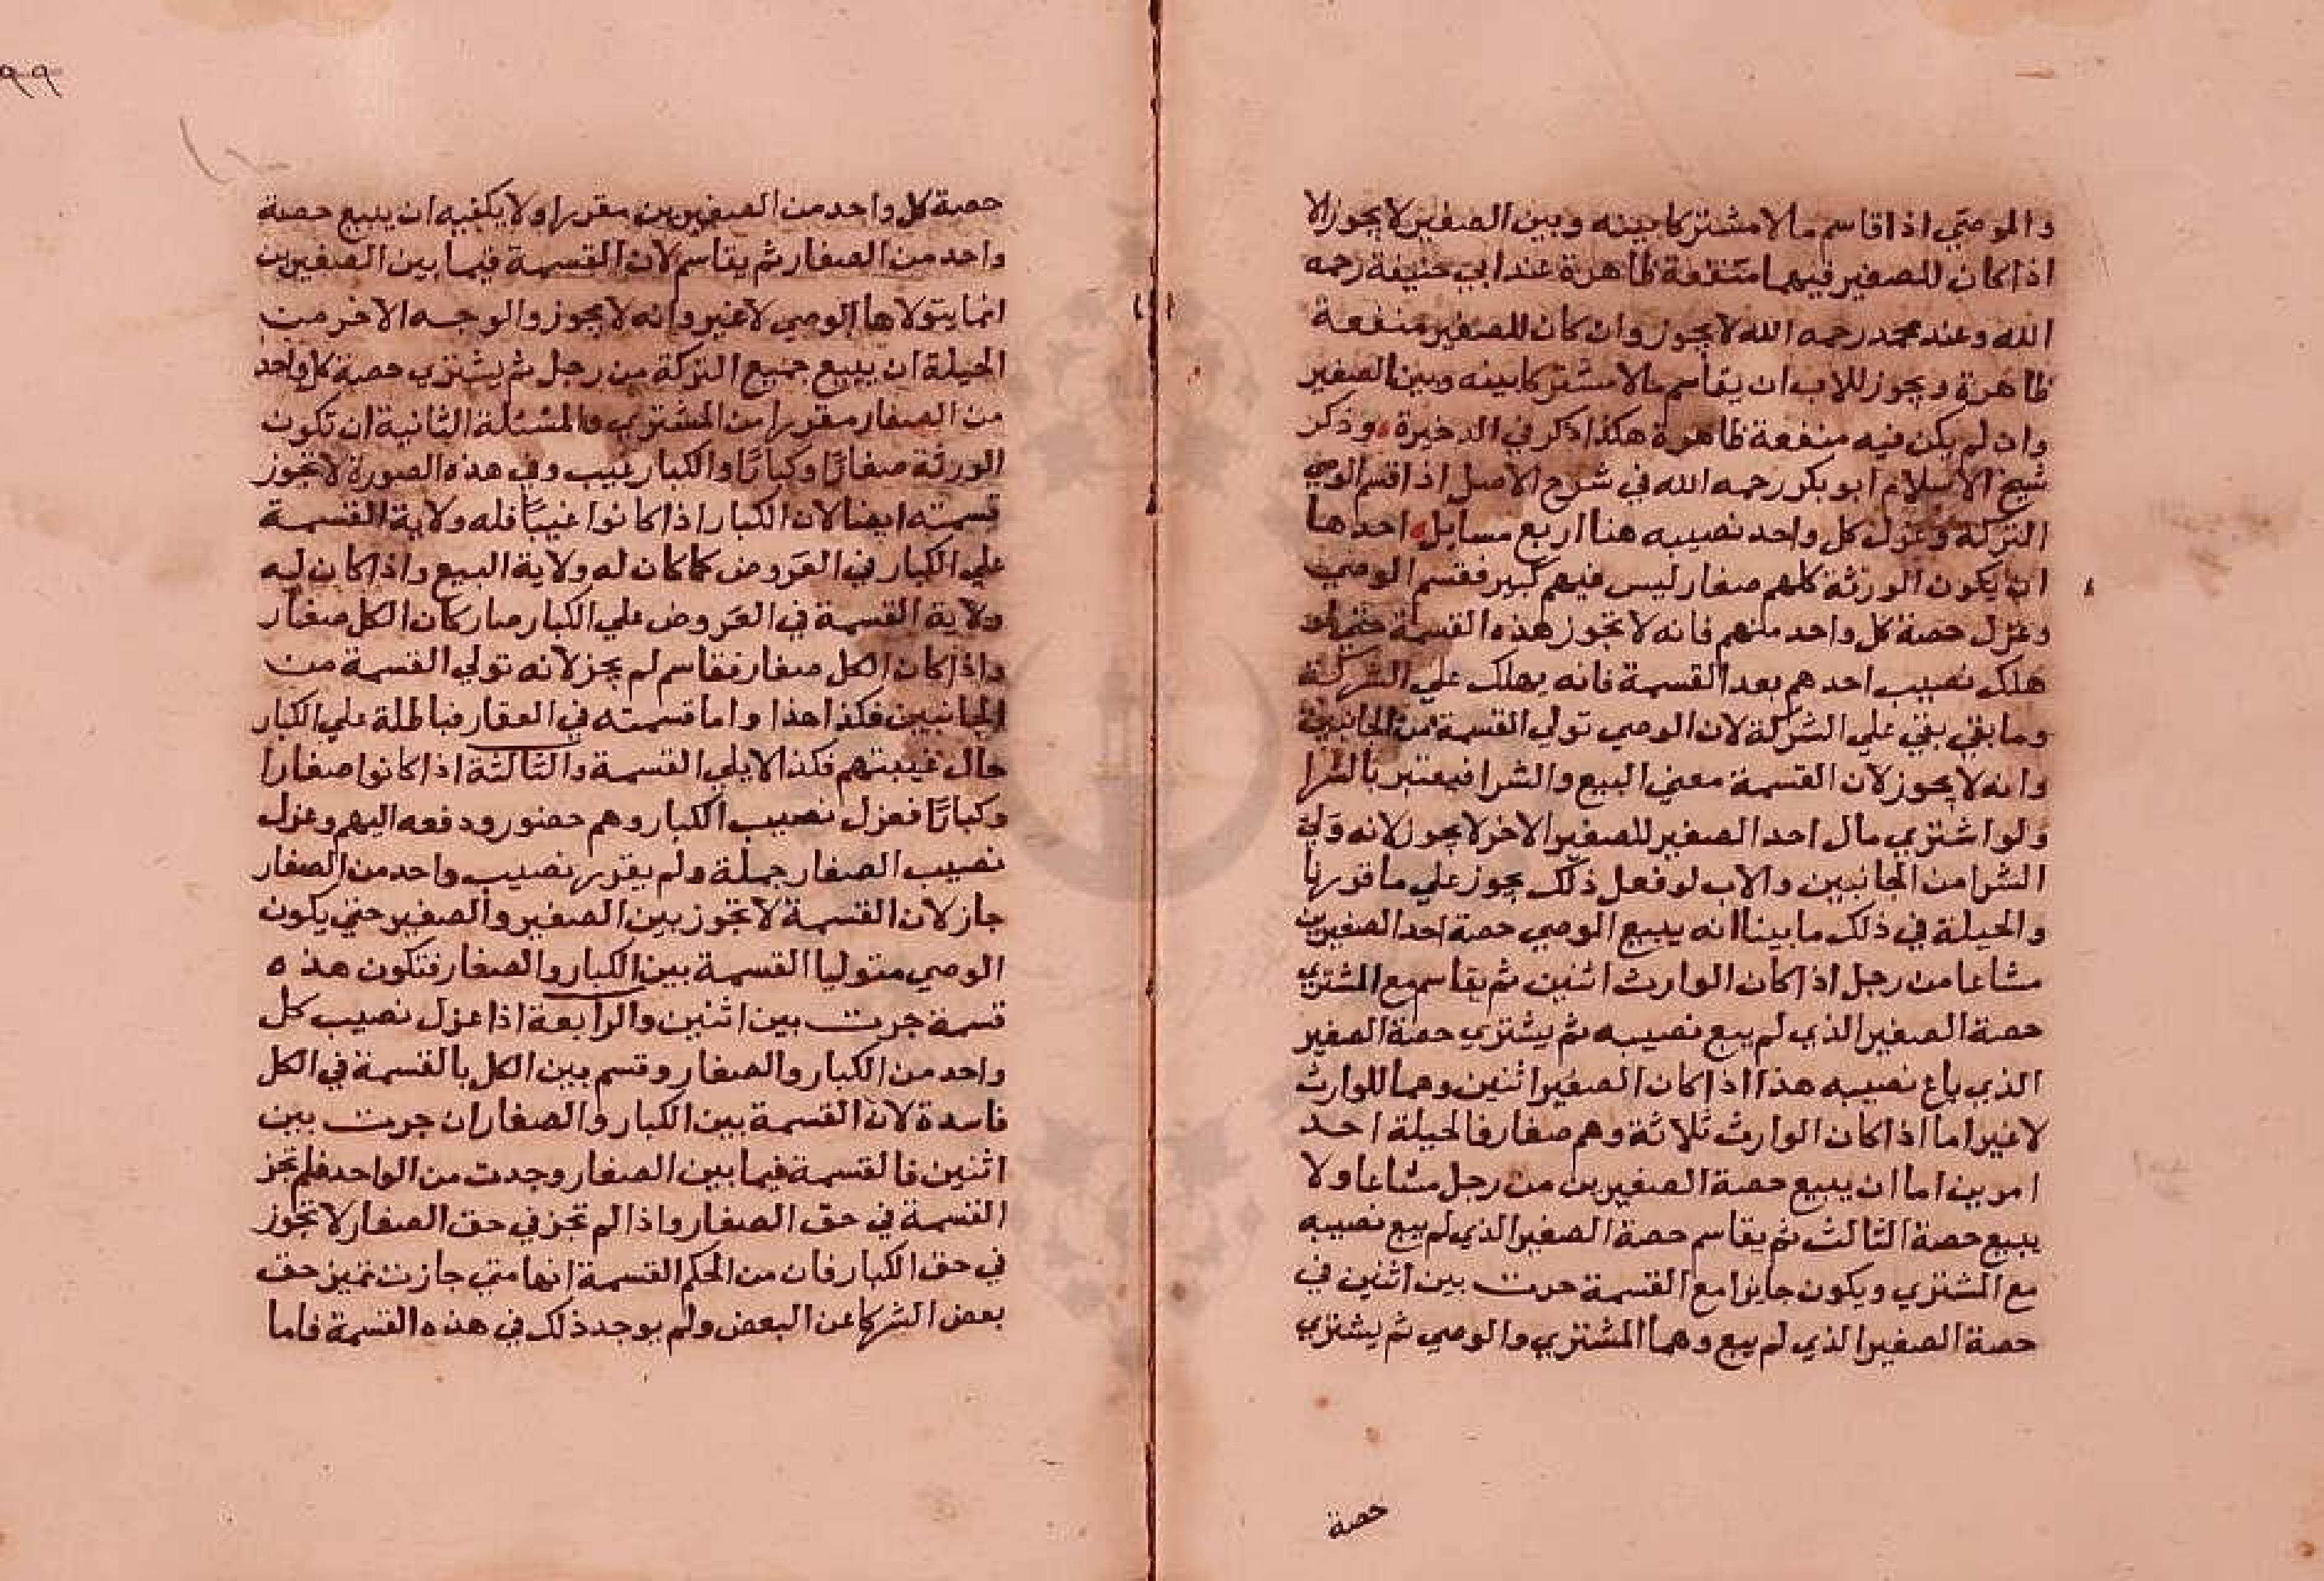 والموصي اذا قاسم مالا مشتركا بينه وبين الصغير لا يجوز الا
اذا كان للصغير فيها منفعة ظاهرة عند ابي حنيفة رحمه
الله وعند محمد رحمه الله لا يجوز وان كان للصغير منفعة
ظاهرة ويجوز للاب ان يقاسم مالا مشتركا بينه وبين الصغير
وان لم يكن فيه منفعة ظاهرة هكذا ذكر في الدخيرة وذكر
شيخ الاسلام ابو بكر رحمه الله في شرح الاصل اذا قسم الوصي
التركة وعزل كل واحد نصيبه هنا اربع مسايل احدها
ان يكون الورثة كلهم صغار ليس فيهم كبير فقسم الوصي
وعزل حصة كل واحد منهم فانه لا تجوز هذه القسمة حتى لو
هلك نصيب احدهم بعد القسمة فانه يهلك علي الشركة
وما بقي بقي علي الشركة لان الوصي تولي القسمة من الجانبين
وانه لا يجوز لان القسمة معني البيع والشرا فيعتبر بالشرا
ولو اشتري مال احد الصغير للصغير الاخر لا يجوز لانه ولي
الشرا من الجانبين والاب لو فعل ذلك يجوز علي ما قررنا
والحيلة في ذلك ما بينا انه يبيع الوصي حصة احد الصغيرين
مشاعا من رجل اذا كان الوارث اثنين ثم يقاسم مع المشتري
حصة الصغير الذي لم يبع نصيبه ثم يشتري حصة الصغير
الذي باع نصيبه هذا اذا كان الصغير اثنين وهما للوارث
لا غير اما اذا كان الوارث ثلاثة وهم صغار فالحيلة احد
امرين اما ان يبيع حصة الصغيرين من رجل مشاعا ولا
يبيع حصة الثالث ثم يقاسم حصة الصغير الذي لم يبع نصيبه
مع المشتري ويكون جايزا مع القسمة جرت بين اثنين في
حصة الصغير الذي لم يبع وهما المشتري والوصي ثم يشتري
حصة
٩٩
حصة كل واحد من الصغيرين مقررا ولا يكفيه ان يبيع حصة
واحد من الصغار ثم يقاسم لان القسمة فيما بين الصغيرين
انما يتولاها الوصي لا غير وانه لا يجوز والوجه الاخر من
الحيلة ان يبيع جميع التركة من رجل ثم يشتري حصة كل واحد
من الصغار مقررا من المشتري والمسئلة الثانية ان تكون
الورثة صغارًا وكبارًا والكبار غيب وفي هذه الصورة لا تجوز
قسمته ايضا لان الكبار اذا كانوا غيبًا فله ولاية القسمة
علي الكبار في العروض كما كان له ولاية البيع واذا كان له
ولاية القسمة في العروض علي الكبار صار كان الكل صغار
واذا كان الكل صغار فقاسم لم يجز لانه تولي القسمة من
الجانبين فكذا هذا واما قسمته في العقار فباطلة علي الكبار
حال غيبتهم فكذا لا يلي القسمة والثالثة اذا كانوا صغارا
وكبارًا فعزل نصيب الكبار وهم حضور ودفعه اليهم وعزل
نصيب الصغار جملة ولم يقرر نصيب واحد من الصغار
جاز لان القسمة لا تجوز بين الصغير والصغير حتي يكون
الوصي متوليا القسمة بين الكبار والصغار فتكون هذه
قسمة جرت بين اثنين والرابعة اذا عزل نصيب كل
واحد من الكبار والصغار وقسم بين الكل بالقسمة في الكل
فاسدة لان القسمة بين الكبار والصغار ان جرت بين
اثنين فالقسمة فيما بين الصغار وجدت من الواحد فلم تجز
القسمة في حق الصغار واذا لم تجز في حق الصغار لا تجوز
في حق الكبار فان من الحكم القسمة انها متي جازت تميز حق
بعض الشركا عن البعض ولم يوجد ذلك في هذه القسمة فاما